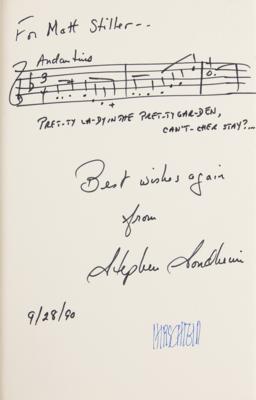 For Matt Stiller--
Andantino
PRET-TY LA-DY IN THE PRET-TY GAR-DEN,
CAN'T-CHER STAY?...
Best wishes again
from
Stephen Sondheim
9/28/90
HIRSCHFELD